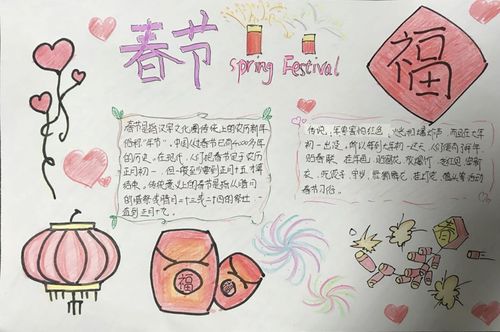 春节
Spring Festival
福
春节是指汉字文化圈传统上的农历新年
俗称“年节”，中国人过春节已有4000多年
的历史，在现代，人们把春节定于农历
正月初一，但一般至少要到正月十五才算
结束，传统意义上的春节是指从腊月
的腊祭或腊月二十三或二十四的祭灶，一
直到正月十九。
传说，年兽害怕红色、火光和爆炸声，而且在大年
初一出没，所以每到大年初一这天，人们便有了拜年、
贴春联、
衣、
春节习俗。
福
春